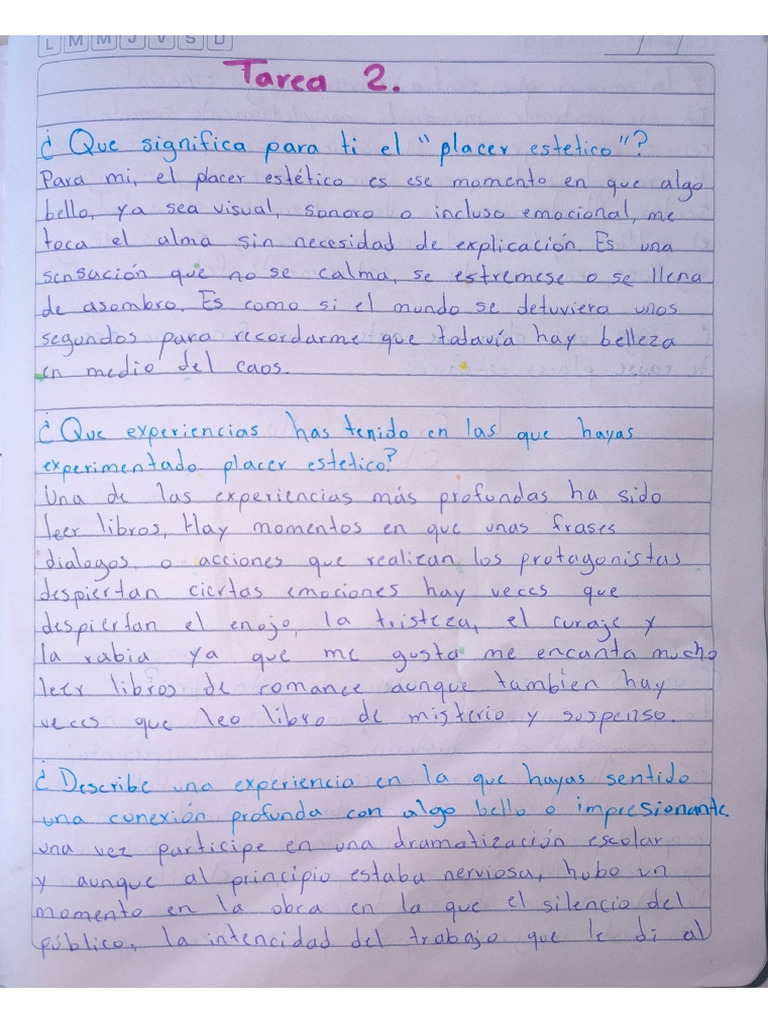 L M M J V S D
Tarea 2.
¿Que significa para ti el "placer estetico"?
Para mi, el placer estético es ese momento en que algo
bello, ya sea visual, sonoro o incluso emocional, me
toca el alma sin necesidad de explicación. Es una
sensación que no se calma, se estremese o se llena
de asombro. Es como si el mundo se detuviera unos
segundos para recordarme que todavía hay belleza
en medio del caos.
¿Que experiencias has tenido en las que hayas
experimentado placer estetico?
Una de las experiencias más profundas ha sido
leer libros, Hay momentos en que unas frases
dialogos, o acciones que realizan los protagonistas
despiertan ciertas emociones hay veces que
despiertan el enojo, la tristeza, el coraje y
la rabia ya que me gusta me encanta mucho
leer libros de romance aunque tambien hay
veces que leo libro de misterio y suspenso.
¿Describe una experiencia en la que hayas sentido
una conexión profunda con algo bello o impresionante.
una vez participe en una dramatización escolar
y aunque al principio estaba nerviosa, hubo un
momento en la obra en la que el silencio del
público, la intencidad del trabajo que le di al